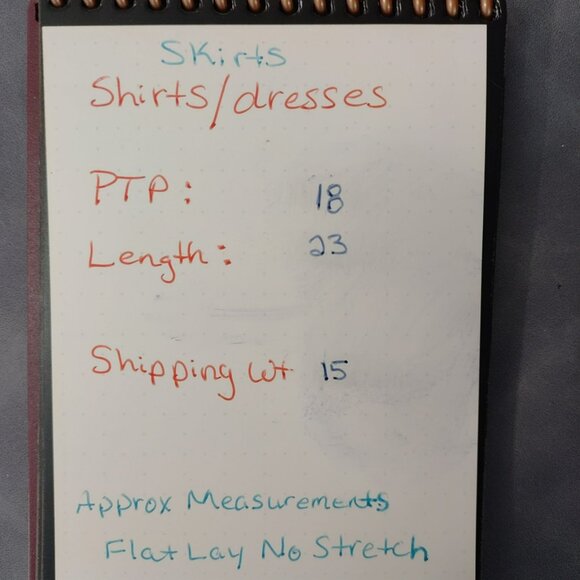 Skirts
Shirts/dresses
PTP: 18
Length: 23
Shipping Wt 15
Approx Measurements
Flat Lay No Stretch